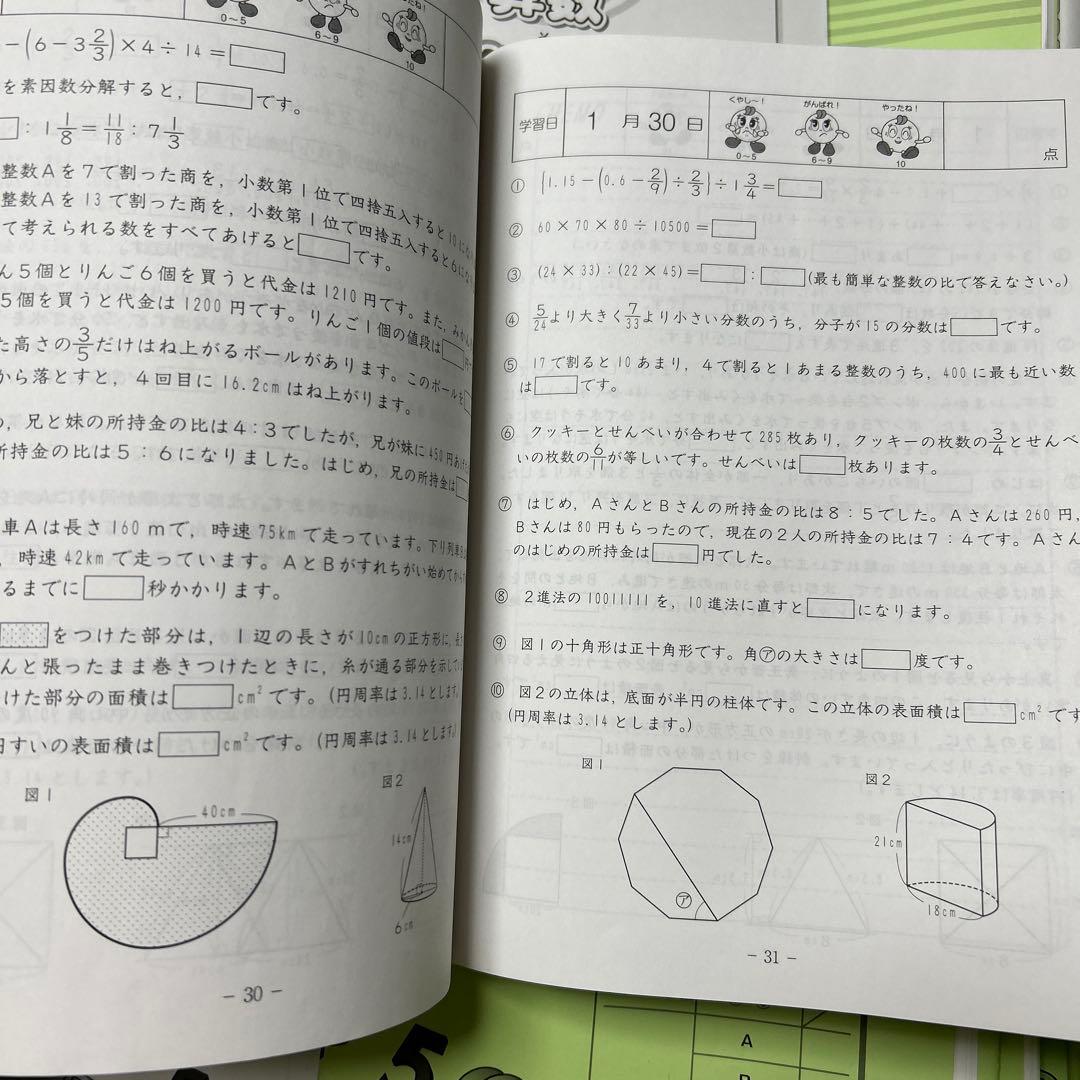 算数
0〜5
6〜9
10
−(6−3 2/3)×4÷14=□
を素因数分解すると，□です。
□：1 1/8＝11/18：7 1/3
整数Aを7で割った商を，小数第1位で四捨五入すると10に
整数Aを13で割った商を，小数第1位で四捨五入すると6に
て考えられる数をすべてあげると□です。
ん5個とりんご6個を買うと代金は1210円です。また，みかん
5個を買うと代金は1200円です。りんご1個の値段は□
た高さの3/5だけはね上がるボールがあります。このボールを
から落とすと，4回目に16.2cmはね上がります。
，兄と妹の所持金の比は4：3でしたが，兄が妹に450円あげた
所持金の比は5：6になりました。はじめ，兄の所持金は□
車Aは長さ160mで，時速75kmで走っています。下り列車
，時速42kmで走っています。AとBがすれちがい始めてから
るまでに□秒かかります。
をつけた部分は，1辺の長さが10cmの正方形に，
んと張ったまま巻きつけたときに，糸が通る部分を示して
つけた部分の面積は□cm²です。(円周率は3.14とします。
円すいの表面積は□cm²です。(円周率は3.14とします。)
図1
40cm
図2
14cm
6cm
−30−
学習日 1月30日
くやし〜！
0〜5
がんばれ！
6〜9
やったね！
10
点
① {1.15−(0.6−2/9)÷2/3}÷1 3/4=□
② 60×70×80÷10500=□
③ (24×33)：(22×45)=□：□(最も簡単な整数の比で答えなさい。)
④ 5/24より大きく7/33より小さい分数のうち，分子が15の分数は□です。
⑤ 17で割ると10あまり，4で割ると1あまる整数のうち，400に最も近い数
は□です。
⑥ クッキーとせんべいが合わせて285枚あり，クッキーの枚数の3/4とせんべ
いの枚数の6/11が等しいです。せんべいは□枚あります。
⑦ はじめ，AさんとBさんの所持金の比は8：5でした。Aさんは260円，
Bさんは80円もらったので，現在の2人の所持金の比は7：4です。Aさん
のはじめの所持金は□円でした。
⑧ 2進法の10011111を，10進法に直すと□になります。
⑨ 図1の十角形は正十角形です。角㋐の大きさは□度です。
⑩ 図2の立体は，底面が半円の柱体です。この立体の表面積は□cm²です
(円周率は3.14とします。)
図1
㋐
図2
21cm
18cm
−31−
5
A